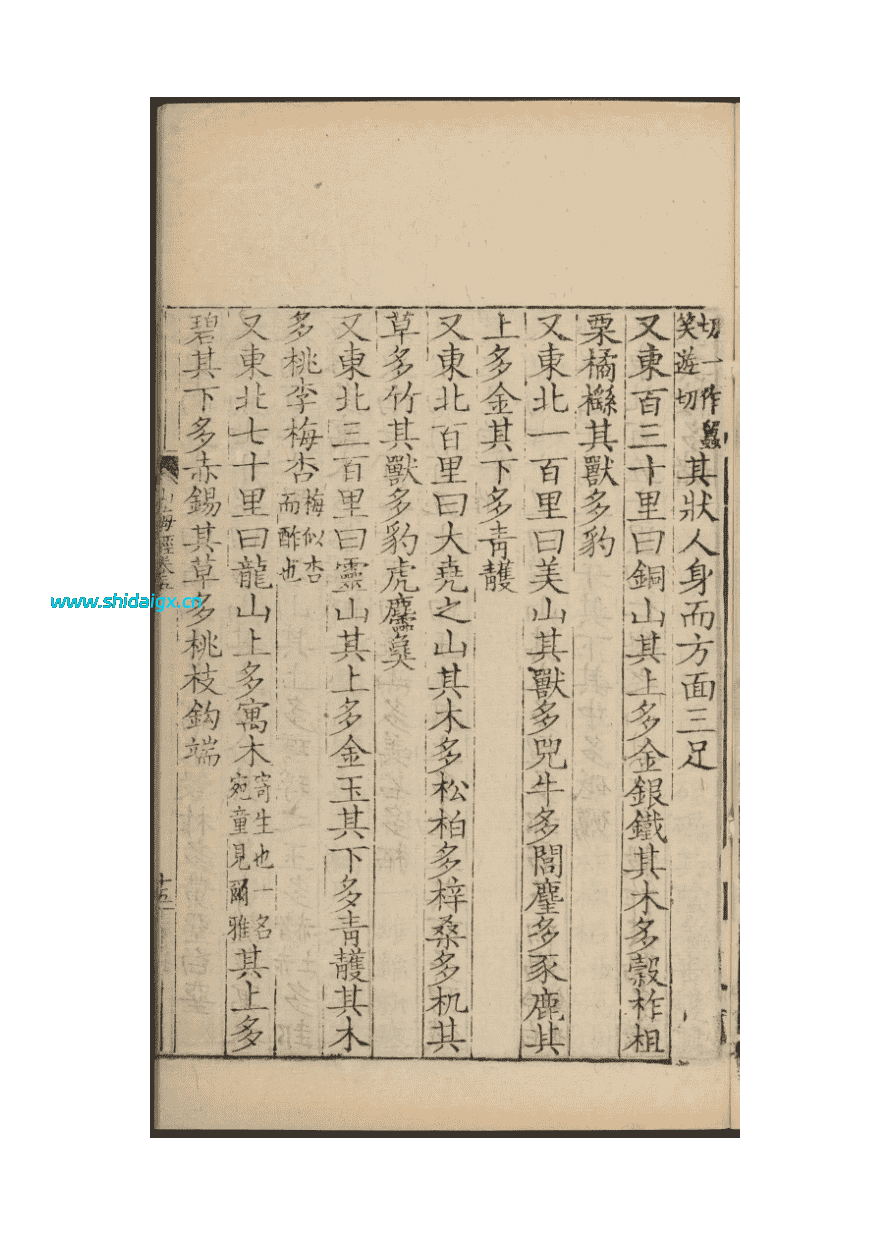 切一作蟸笑遊切其狀人身而方面三足
又東百三十里曰銅山其上多金銀鐵其木多榖柞柤
栗橘櫾其獸多豹
又東北一百里曰美山其獸多兕牛多閭麈多豕鹿其
上多金其下多青頀
又東北百里曰大堯之山其木多松柏多梓桑多机其
草多竹其獸多豹虎麢㚟
又東北三百里曰靈山其上多金玉其下多青頀其木
多桃李梅杏梅似杏而酢也
又東北七十里曰龍山上多寓木寄生也一名宛童見爾雅其上多
碧其下多赤錫其草多桃枝鈎端
山海經卷五
十五
www.shidaigx.cn